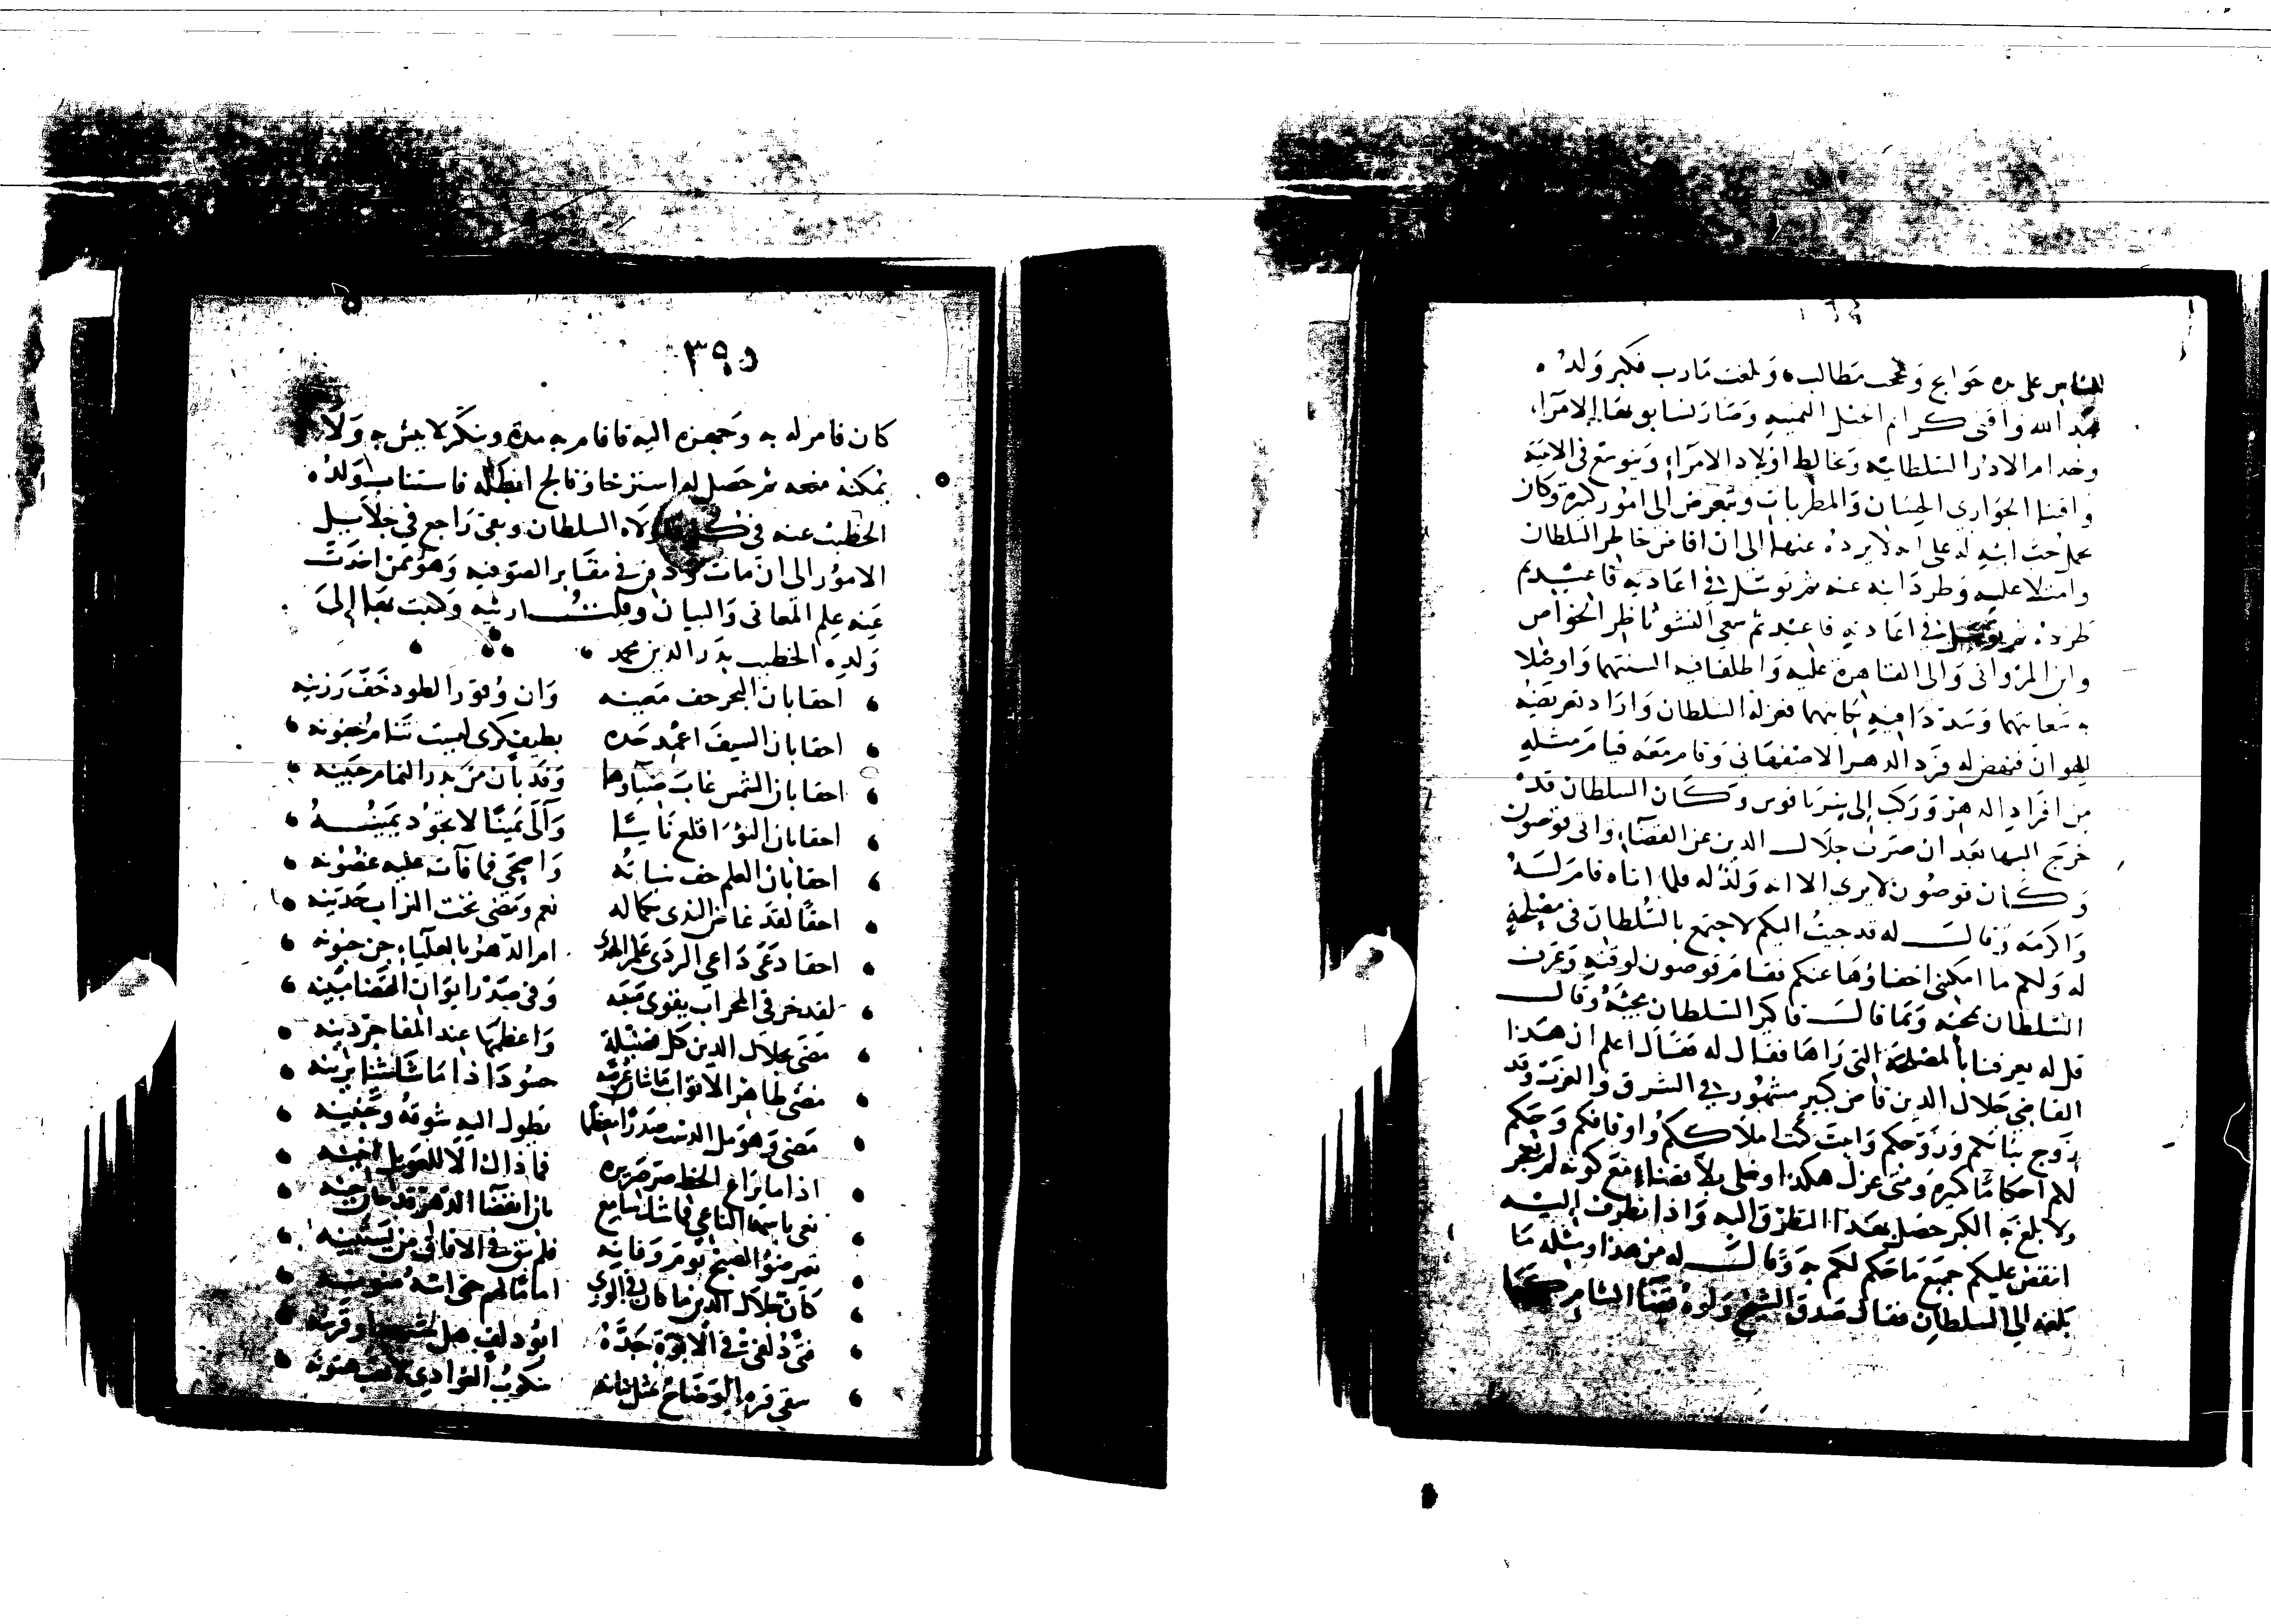 للناس على يده حوائج ونجحت مطالب وبلغت مآرب فكبر ولده
عبد الله واقتنى كرام الخيل الثمينة وصار يسابق بها الامراء
وخدام الادر السلطانية ويخالط اولاد الامراء ويتوسع في الابنية
واقتناء الجواري الحسان والمطربات وتعرض الى امور كبيرة وكان
يحمله حب ابنه له على انه لا يرده عنها الى ان افاض خاطر السلطان
وامتلا عليه وطرد ابنه عنه ثم توسل في اعادته فاعيد ثم
طرده ثم توسل في اعادته فاعيد ثم سعى النشو ناظر الخواص
وابن المرواني والى القاهرة عليه واطلقا فيه السنتهما واوصلا
فعزله السلطان واراد تعريضه
للهوان فنهض له فرد الدهر الاصفهاني وقام معه قيام مثله
من افراد الدهر وركب الى سرياقوس وكان السلطان قد
خرج اليها بعد ان صرف جلال الدين عن القضاء واتى قوصون
وكان قوصون لا يرى الا انه ولد له فلما اتاه قام له
واكرمه وقال له قد جيت اليكم لاجتمع بالسلطان في مصلحة
له ولكم ما امكنني اخفاؤها عنكم فقام قوصون لوقته وعرف
السلطان بمجيئه وبما قال فاكبر السلطان مجيئه وقال
قل له يعرفنا بالمصلحة التي رآها فقال له فقال اعلم ان هذا
القاضي جلال الدين قاض كبير مشهور في الشرق والغرب وقد
زوج بناتكم وزوجكم واثبت كتب املاككم واوقافكم وحكم
لكم احكاما كبيره ومتى عزل هكذا وخلى بلا قضاء مع كونه لم يعجز
ولا بلغ به الكبر حصل بهذا التطرق اليه واذا تطرق اليه
انتقض عليكم جميع ما حكم لكم به وقال له من هذا ومثله ما
بلغه الى السلطان فقال صدق الشيخ ولوه قضاء الشام كما
٣٩٥
كان فامر له به وجهزه اليه فاقام به مدة وينكر لا يبش به ولا
يمكنه منعه ثم حصل له استرخا وفالج ابطله فاستناب ولده
الخطيب عنه في كل ما ولاه السلطان وبقى راجع في جلايل
الامور الى ان مات ودفن في مقابر الصوفيه وهو ممن اخذت
عنه علم المعاني والبيان وقلت ارثيه وكتبت بها الى
ولده الخطيب بدر الدين محمد
احقا بان البحر جف معينه وان وقور الطود خف رزينه
احقا بان السيف اغمد حده بطيف كرى ليست تنام جفونه
احقا بان الشمس غاب ضياؤها وقد بان من بدر التمام جبينه
احقا بان النوء اقلع نايبا وآلى يمينا لا تجود يمينه
احقا بان العلم جف نباته واضحى فما فآت عليه غصونه
احقا لقد غاض الندى بكماله نعم ومضى تحت التراب خدينه
احقا دعى داعي الردى علم الهدى ام الدهر بالعلياء جن جنونه
لقد خر في المحراب يقوى متينه وفي صدر ايوان القضا مبينه
مضى بجلال الدين كل فضيلة واعظمها عند المفاخر دينه
مضى طاهر الاثواب ما شان عرضه حسود اذا ما شا شيئا يزينه
مضى وهو مل الدست صدرا معظما يطول اليه شوقه وحنينه
اذا ما يراع الخط صر صريره فما ذاك الا للعويل انينه
نعى باسمها الناعي فما شك سامع بان انقضا الدهر قد حان حينه
تعير ضوء الصبح يوم وفاته فلم يبق في الافاق من يستبينه
كان جلال الدين ما كان في الورى اماما لهم حتى اتته منونه
فتى دلفى في الابوة جده ابو دلف هل
سقى قبره الوضاح سكوب الغوادي